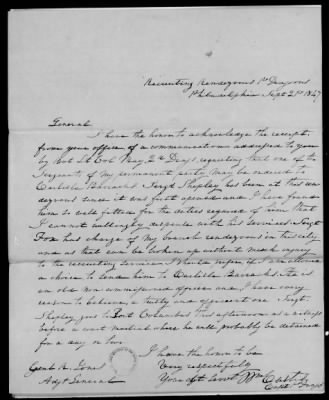 Recruiting Rendezvous 2d Dragoons
Philadelphia Sept 21st 1847
General
I have the honor to acknowledge the receipt
from your office of a communication addressed to you
by Bvt Lt Col May, 2d Drags requesting that one of the
Sergeants of my permanent party may be ordered to
Carlisle Barracks. Sergt Shepley has been at this ren-
dezvous since it was first opened and I have found
him so well fitted for the duties required of him that
I cannot willingly dispense with his services. Sergt
Fox has charge of my branch rendezvous in this city
and as that can be broken up without much injury
to the recruiting service I should refer, if I am allowed
a choice to send him to Carlisle Barracks. He is
an old non commissioned officer and I have every
reason to believe, a trusty and efficient one. Sergt.
Shepley goes to Fort Columbus this afternoon as a witness
before a court martial where he will probably be detained
for a day or two.
I have the honor to be
Very respectfully
Your obt servt
Genl R. Jones
Adjt General